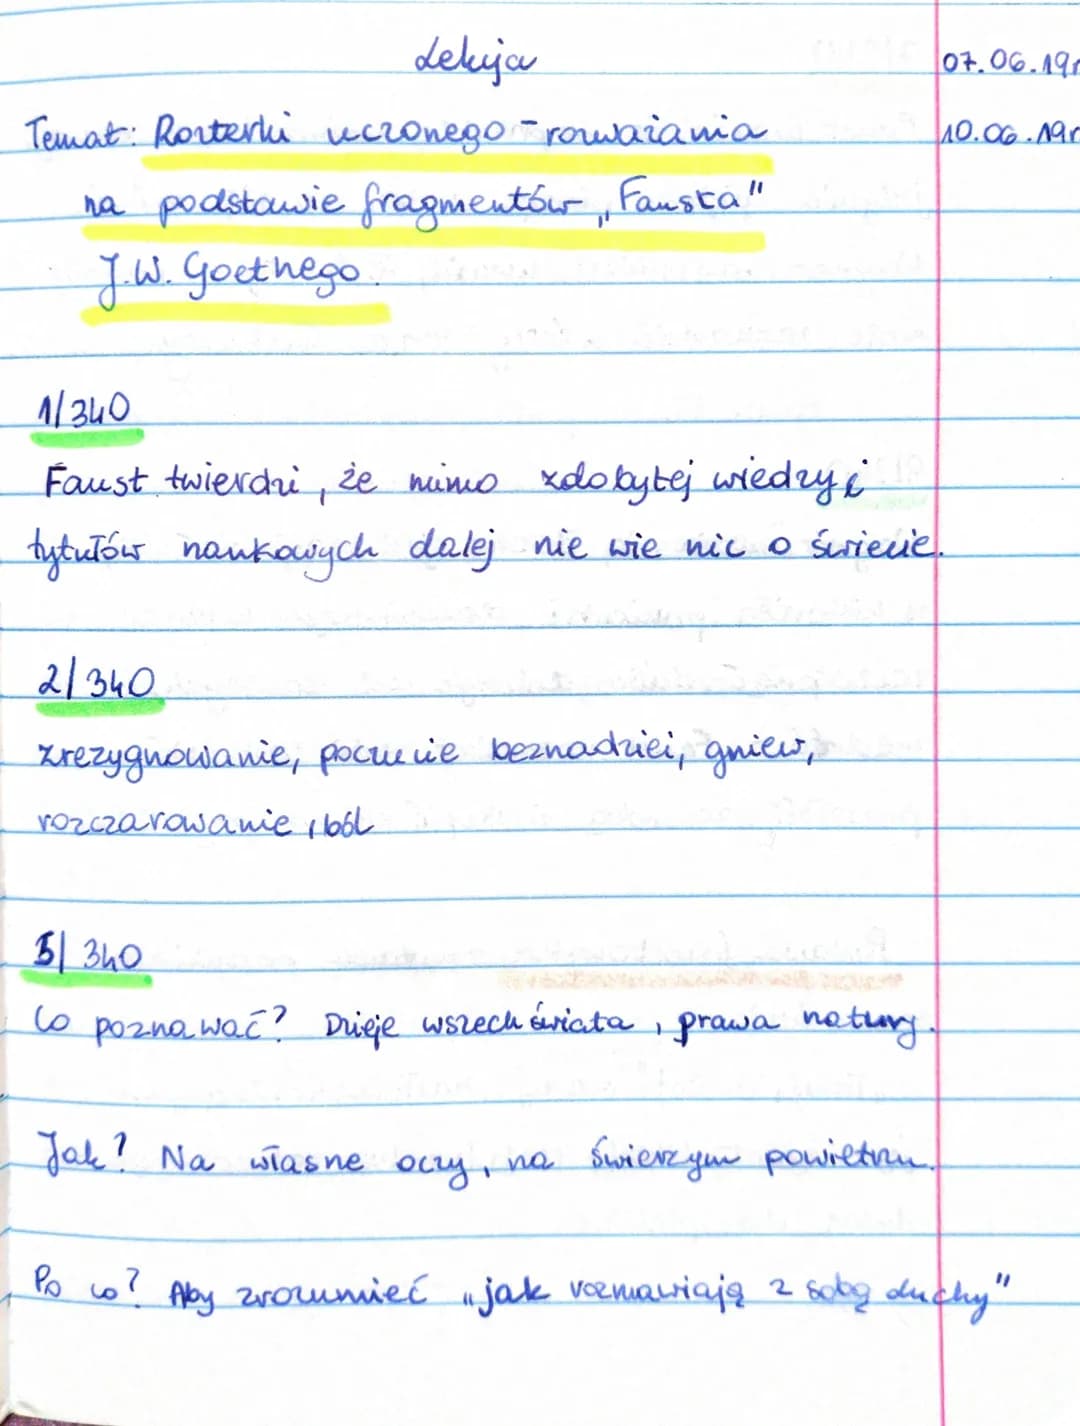 Lekcja
07.06.19r
Temat: Rozterki uczonego - rozważania
10.06.19r
na podstawie fragmentów „Fausta"
J.W. Goethego.
1/340
Faust twierdzi, że mimo zdobytej wiedzy i
tytułów naukowych dalej nie wie nic o świecie.
2/340
zrezygnowanie, poczucie beznadziei, gniew,
rozczarowanie, ból
3/340
Co poznawać? Dzieje wszechświata, prawa natury.
Jak? Na własne oczy, na świerzym powietrzu.
Po co? Aby zrozumieć „jak rozmawiają z sobą duchy"